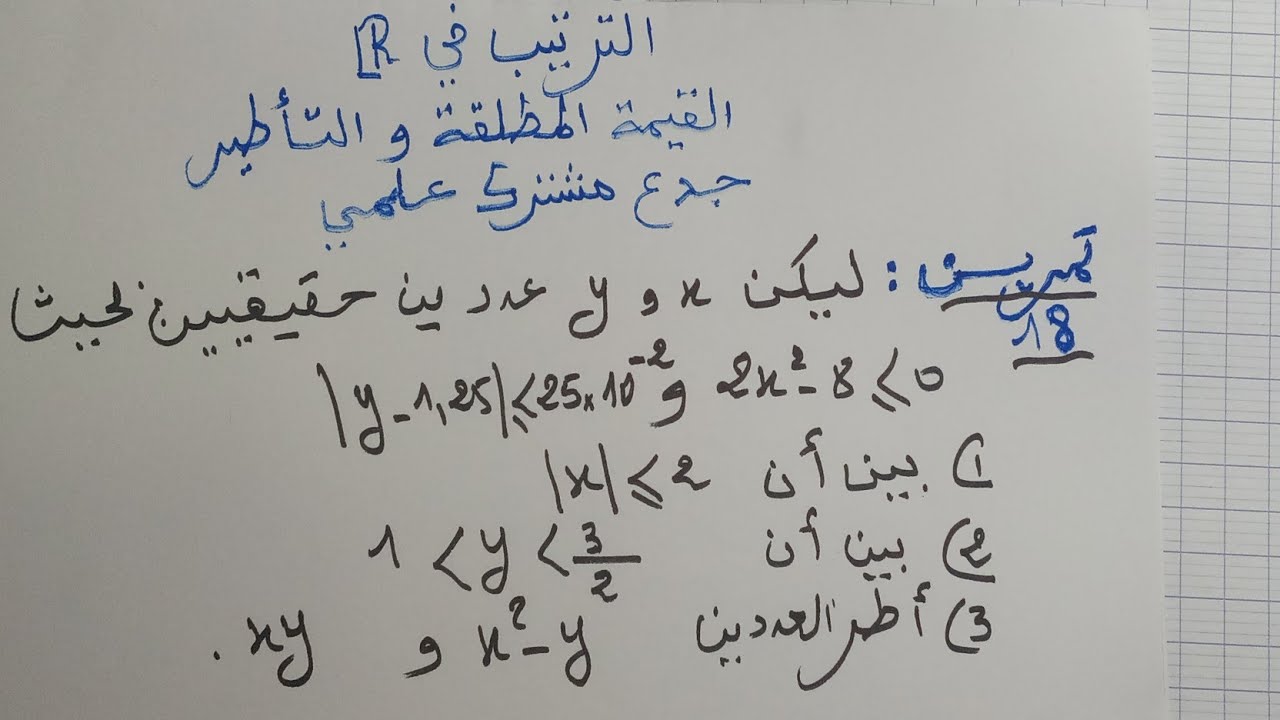 الترتيب في ℝ
القيمة المطلقة و التأطير
جدع مشترك علمي
تمرين 18: ليكن x و y عددين حقيقيين بحيث
|y-1,25|⩽25×10⁻² و 2x²-8⩽0
1) بين أن |x|⩽2
2) بين أن 1<y<3/2
3) أطر العددين x²-y و xy.